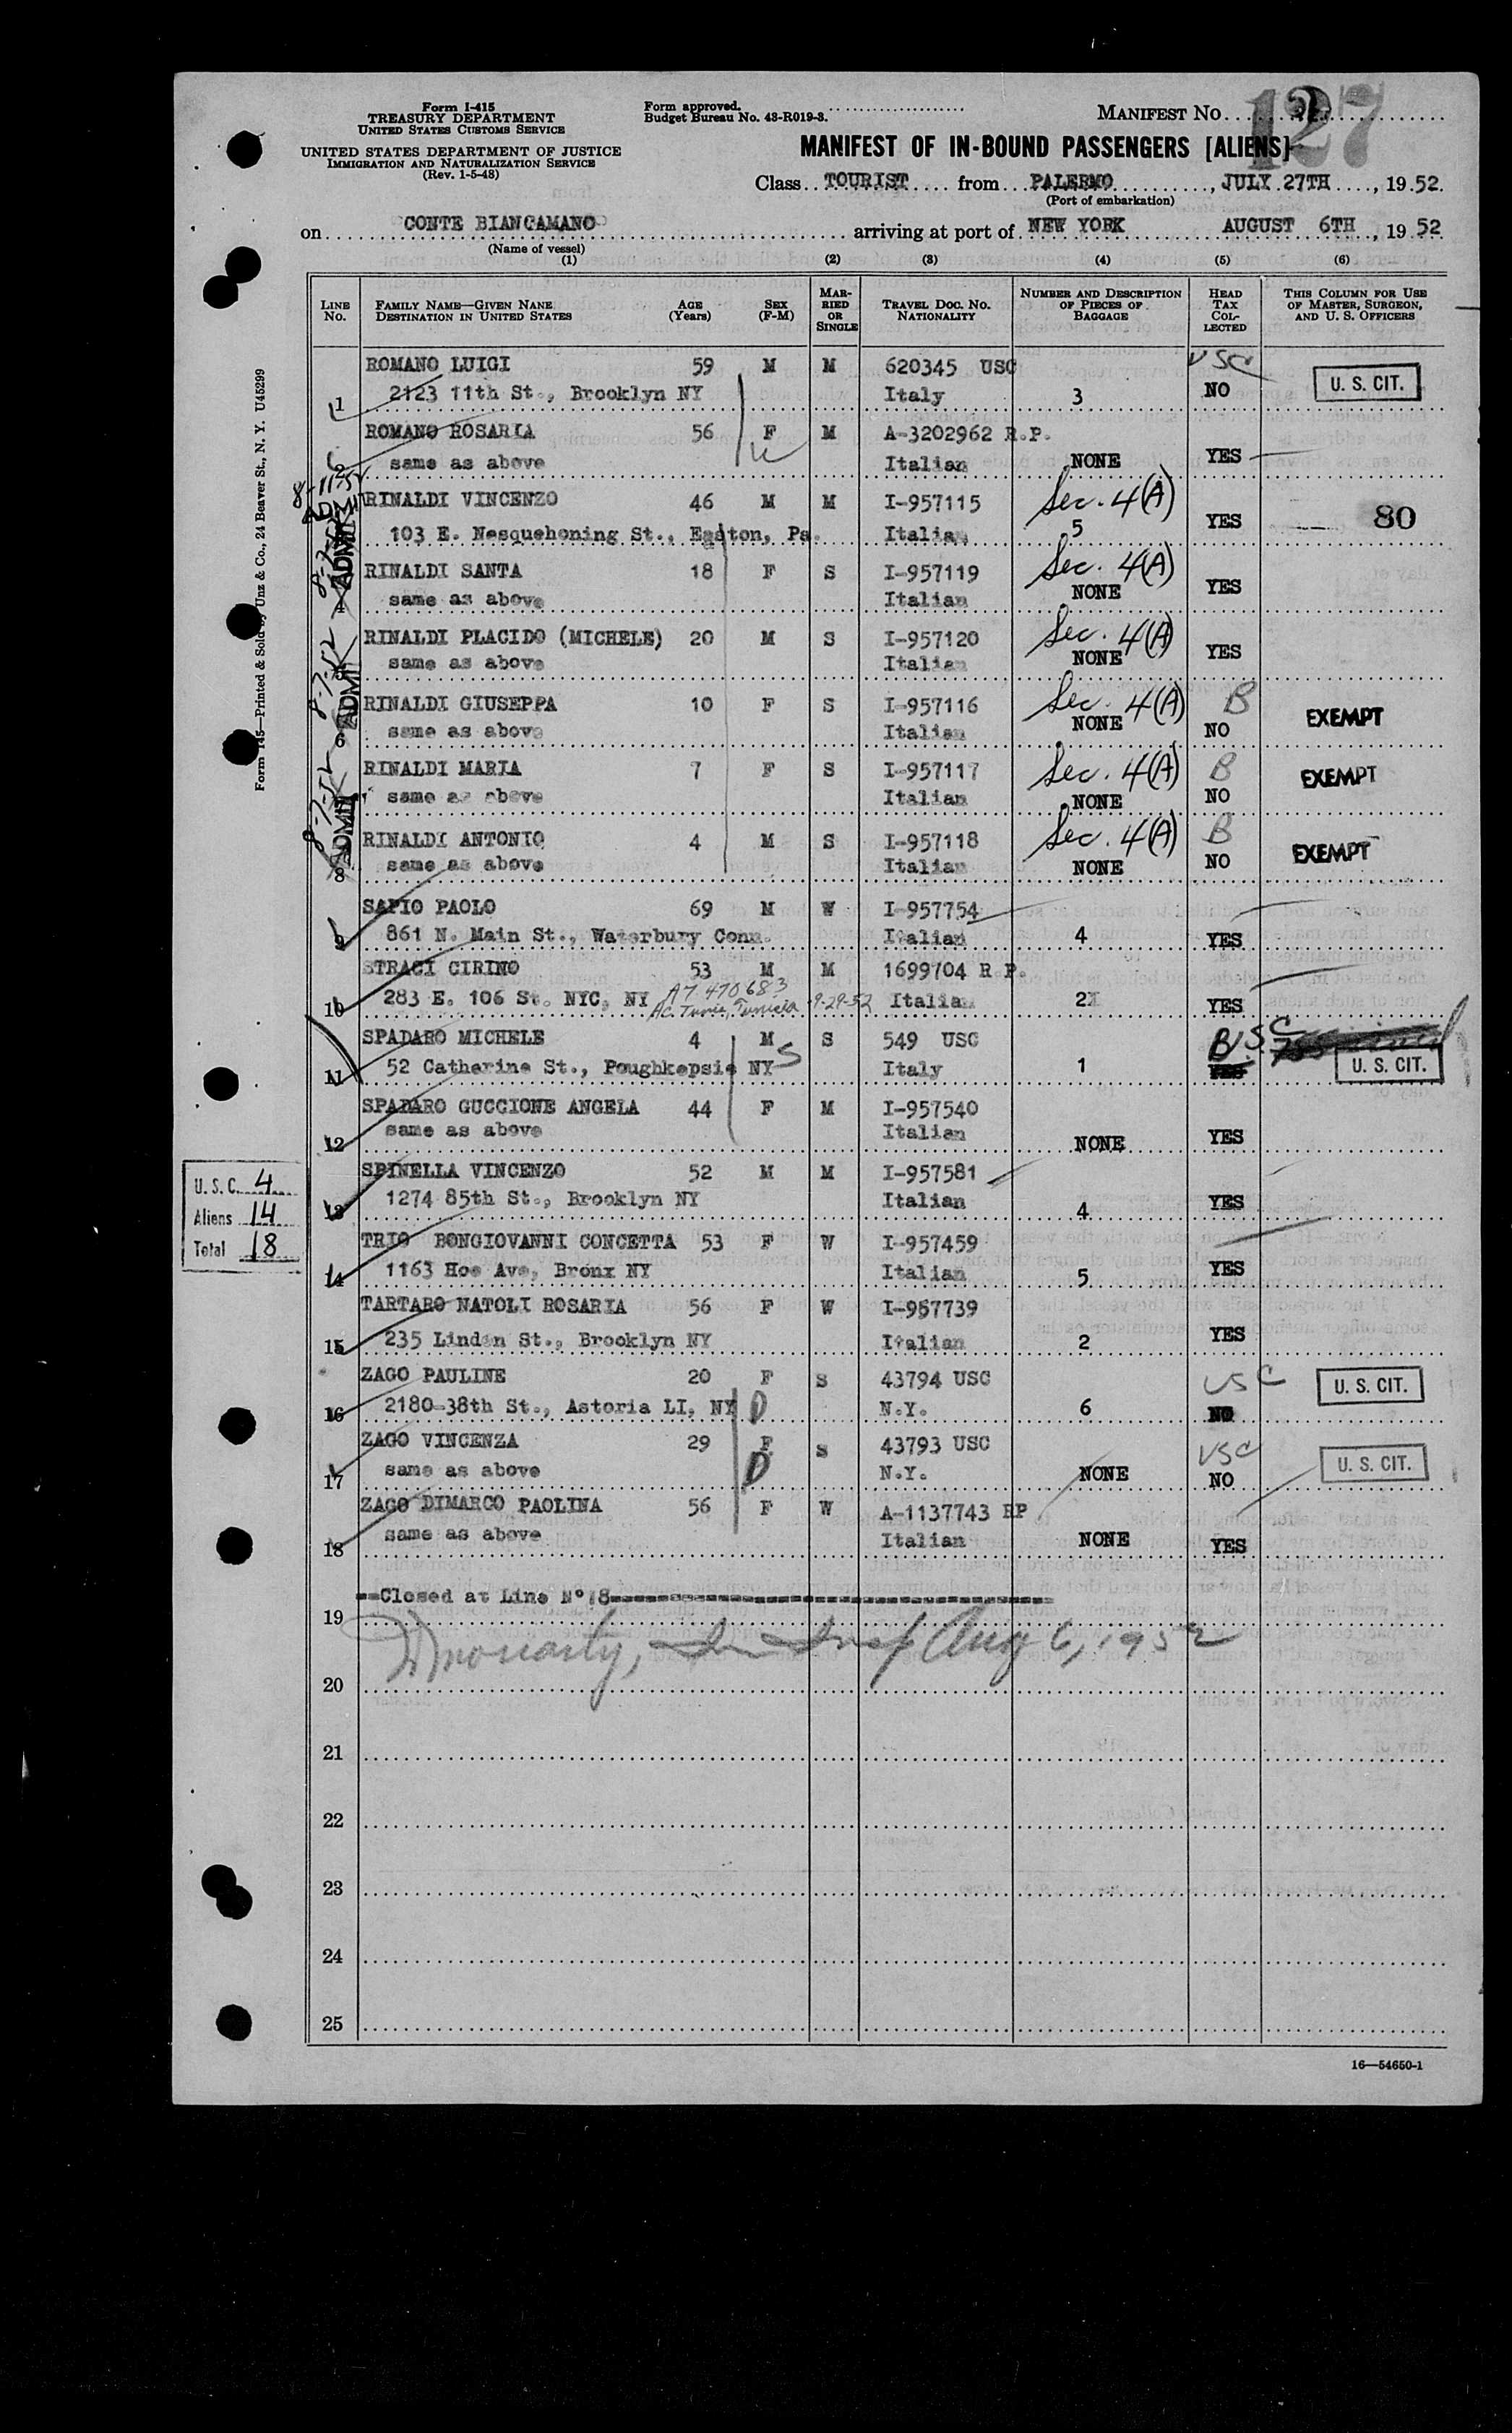 Form I-415
TREASURY DEPARTMENT
UNITED STATES CUSTOMS SERVICE
UNITED STATES DEPARTMENT OF JUSTICE
IMMIGRATION AND NATURALIZATION SERVICE
(Rev. 1-5-48)
Form approved.
Budget Bureau No. 43-R019-3.
MANIFEST NO. 127
MANIFEST OF IN-BOUND PASSENGERS [ALIENS]
Class TOURIST from PALERMO, JULY 27TH, 1952.
(Port of embarkation)
on CONTE BIANCAMANO arriving at port of NEW YORK AUGUST 6TH, 1952
(Name of vessel)
(1) (2) (3) (4) (5) (6)
LINE NO. FAMILY NAME—GIVEN NAME DESTINATION IN UNITED STATES AGE (Years) SEX (F-M) MARRIED OR SINGLE TRAVEL DOC. NO. NATIONALITY NUMBER AND DESCRIPTION OF PIECES OF BAGGAGE HEAD TAX COLLECTED THIS COLUMN FOR USE OF MASTER, SURGEON, AND U. S. OFFICERS
ROMANO LUIGI 59 M M 620345 USC USC U. S. CIT.
1 2123 11th St., Brooklyn NY Italy 3 NO
ROMANO ROSARIA 56 F M A-3202962 R.P.
2 same as above Italian NONE YES
RINALDI VINCENZO 46 M M I-957115 Sec. 4(A)
103 E. Nesquehoning St., Easton, Pa. Italian 5 YES 80
RINALDI SANTA 18 F S I-957119 Sec. 4(A)
4 same as above Italian NONE YES
RINALDI PLACIDO (MICHELE) 20 M S I-957120 Sec. 4(A)
same as above Italian NONE YES
RINALDI GIUSEPPA 10 F S I-957116 Sec. 4(A) B EXEMPT
6 same as above Italian NONE NO
RINALDI MARIA 7 F S I-957117 Sec. 4(A) B EXEMPT
same as above Italian NONE NO
RINALDI ANTONIO 4 M S I-957118 Sec. 4(A) B EXEMPT
8 same as above Italian NONE NO
SAPIO PAOLO 69 M W I-957754
9 861 N. Main St., Waterbury Conn. Italian 4 YES
STRACI CIRINO 53 M M 1699704 R P.
10 283 E. 106 St. NYC, NY A7 470683 Tunis, Tunisia 9-29-52 Italian 2 YES
SPADARO MICHELE 4 M S 549 USC USC
11 52 Catherine St., Poughkepsie NY S Italy 1 U. S. CIT.
SPADARO GUCCIONE ANGELA 44 F M I-957540
12 same as above Italian NONE YES
SPINELLA VINCENZO 52 M M I-957581
13 1274 85th St., Brooklyn NY Italian 4 YES
TRIO BONGIOVANNI CONCETTA 53 F W I-957459
14 1163 Hoe Ave, Bronx NY Italian 5 YES
TARTARO NATOLI ROSARIA 56 F W I-957739
15 235 Linden St., Brooklyn NY Italian 2 YES
ZAGO PAULINE 20 F S 43794 USC USC U. S. CIT.
16 2180-38th St., Astoria LI, NY D N.Y. 6 NO
ZAGO VINCENZA 29 F S 43793 USC USC U. S. CIT.
17 same as above D N.Y. NONE NO
ZAGO DIMARCO PAOLINA 56 F W A-1137743 RP
18 same as above Italian NONE YES
==Closed at Line N° 18==
19
Aug 6, 1952
20
21
22
23
24
25
16—54650-1
U. S. C. 4
Aliens 14
Total 18
Form 145—Printed & Sold by Unz & Co., 24 Beaver St., N. Y. U45299